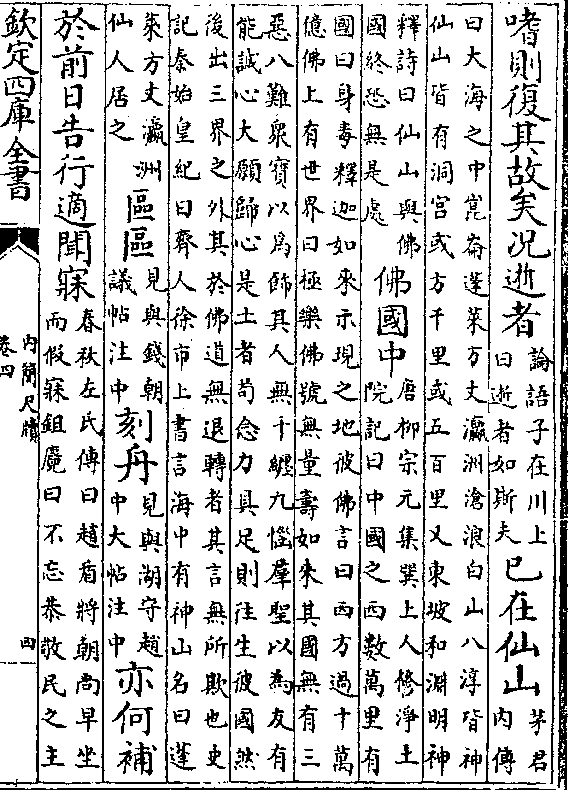 嗜則復其故矣况逝者論語子在川上曰逝者如斯夫已在仙山茅君内傳
曰大海之中崑崙蓬萊方丈瀛洲滄浪白山八淳皆神
仙山皆有洞宫或方千里或五百里又東坡和淵明神
釋詩曰仙山與佛國終恐無是處佛國中唐栁宗元集巽上人修淨土院記曰中國之西數萬里有
國曰身毒釋迦如來示現之地彼佛言曰西方過十萬
億佛上有世界曰極樂佛號無量夀如來其國無有三
惡八難衆寳以爲飾其人無十纒九惱羣聖以為友有
能誠心大願歸心是土者苟念力具足則往生彼國然
後出三界之外其於佛道無退轉者其言無所欺也史
記秦始皇紀曰齊人徐市上書言海中有神山名曰蓬
萊方丈瀛洲仙人居之區區見與錢朝議帖注中刻舟見與湖守趙中大帖注中亦何補
於前日告行適聞寐春秋左氏傳曰趙盾將朝尚早坐而假寐鉏麑曰不忘恭敬民之主
欽定四庫全書
内簡尺牘
卷四
四